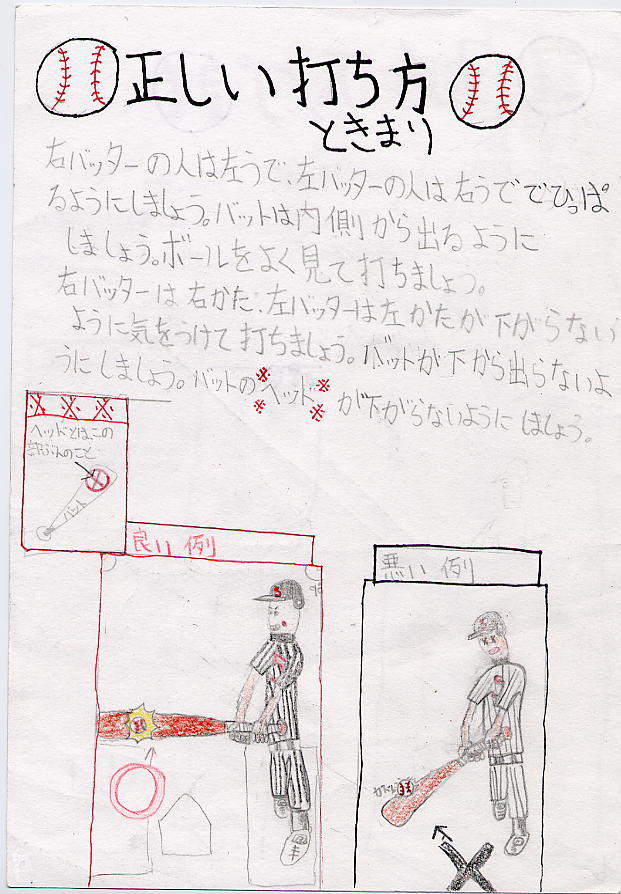 正しい打ち方
ときまり
右バッターの人は左うで、左バッターの人は右うででひっぱ
るようにしましょう。バットは内側から出るように
しましょう。ボールをよく見て打ちましょう。
右バッターは右かた、左バッターは左かたが下がらない
ように気をつけて打ちましょう。バットが下から出らないよ
うにしましょう。バットの※ヘッド※が下がらないようにしましょう。
※※※
ヘッドとは、この
部ぶんのこと
バット
良い例
悪い例
S
S